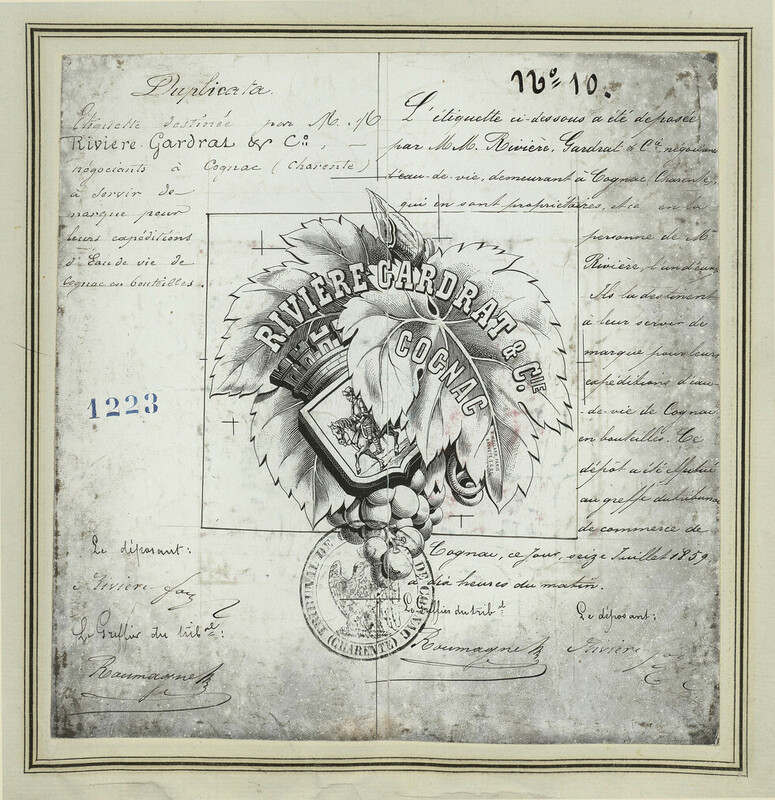 Duplicata.
Etiquette destinée par M. M
Rivière. Gardrat & Cie. —
négociants à Cognac (Charente)
à servir de
marque pour
leurs expéditions
d'Eau de vie de
Cognac en bouteilles.
1223
Le déposant:
Rivière
Le Greffier du tribal:
Roumagne
No 10.
L'étiquette ci-dessous a été déposée
par M M. Rivière, Gardrat & Cie, négociants
d'eau-de-vie, demeurant à Cognac (Charente),
qui en sont propriétaires, et en la
personne de Mr
Rivière, l'un d'eux
Ils la destinent
à leur servir de
marque pour leurs
expéditions d'eau-
de-vie de Cognac
en bouteilles. Ce
dépôt a été effectué
au greffe du tribunal
de commerce de
Cognac, ce jour, seize Juillet 1859
à dix heures du matin.
Le Greffier du tribal
Roumagne
Le déposant:
Rivière
RIVIÈRE GARDRAT & CIE
COGNAC
TRIBUNAL DE DE COGNAC
(CHARENTE)